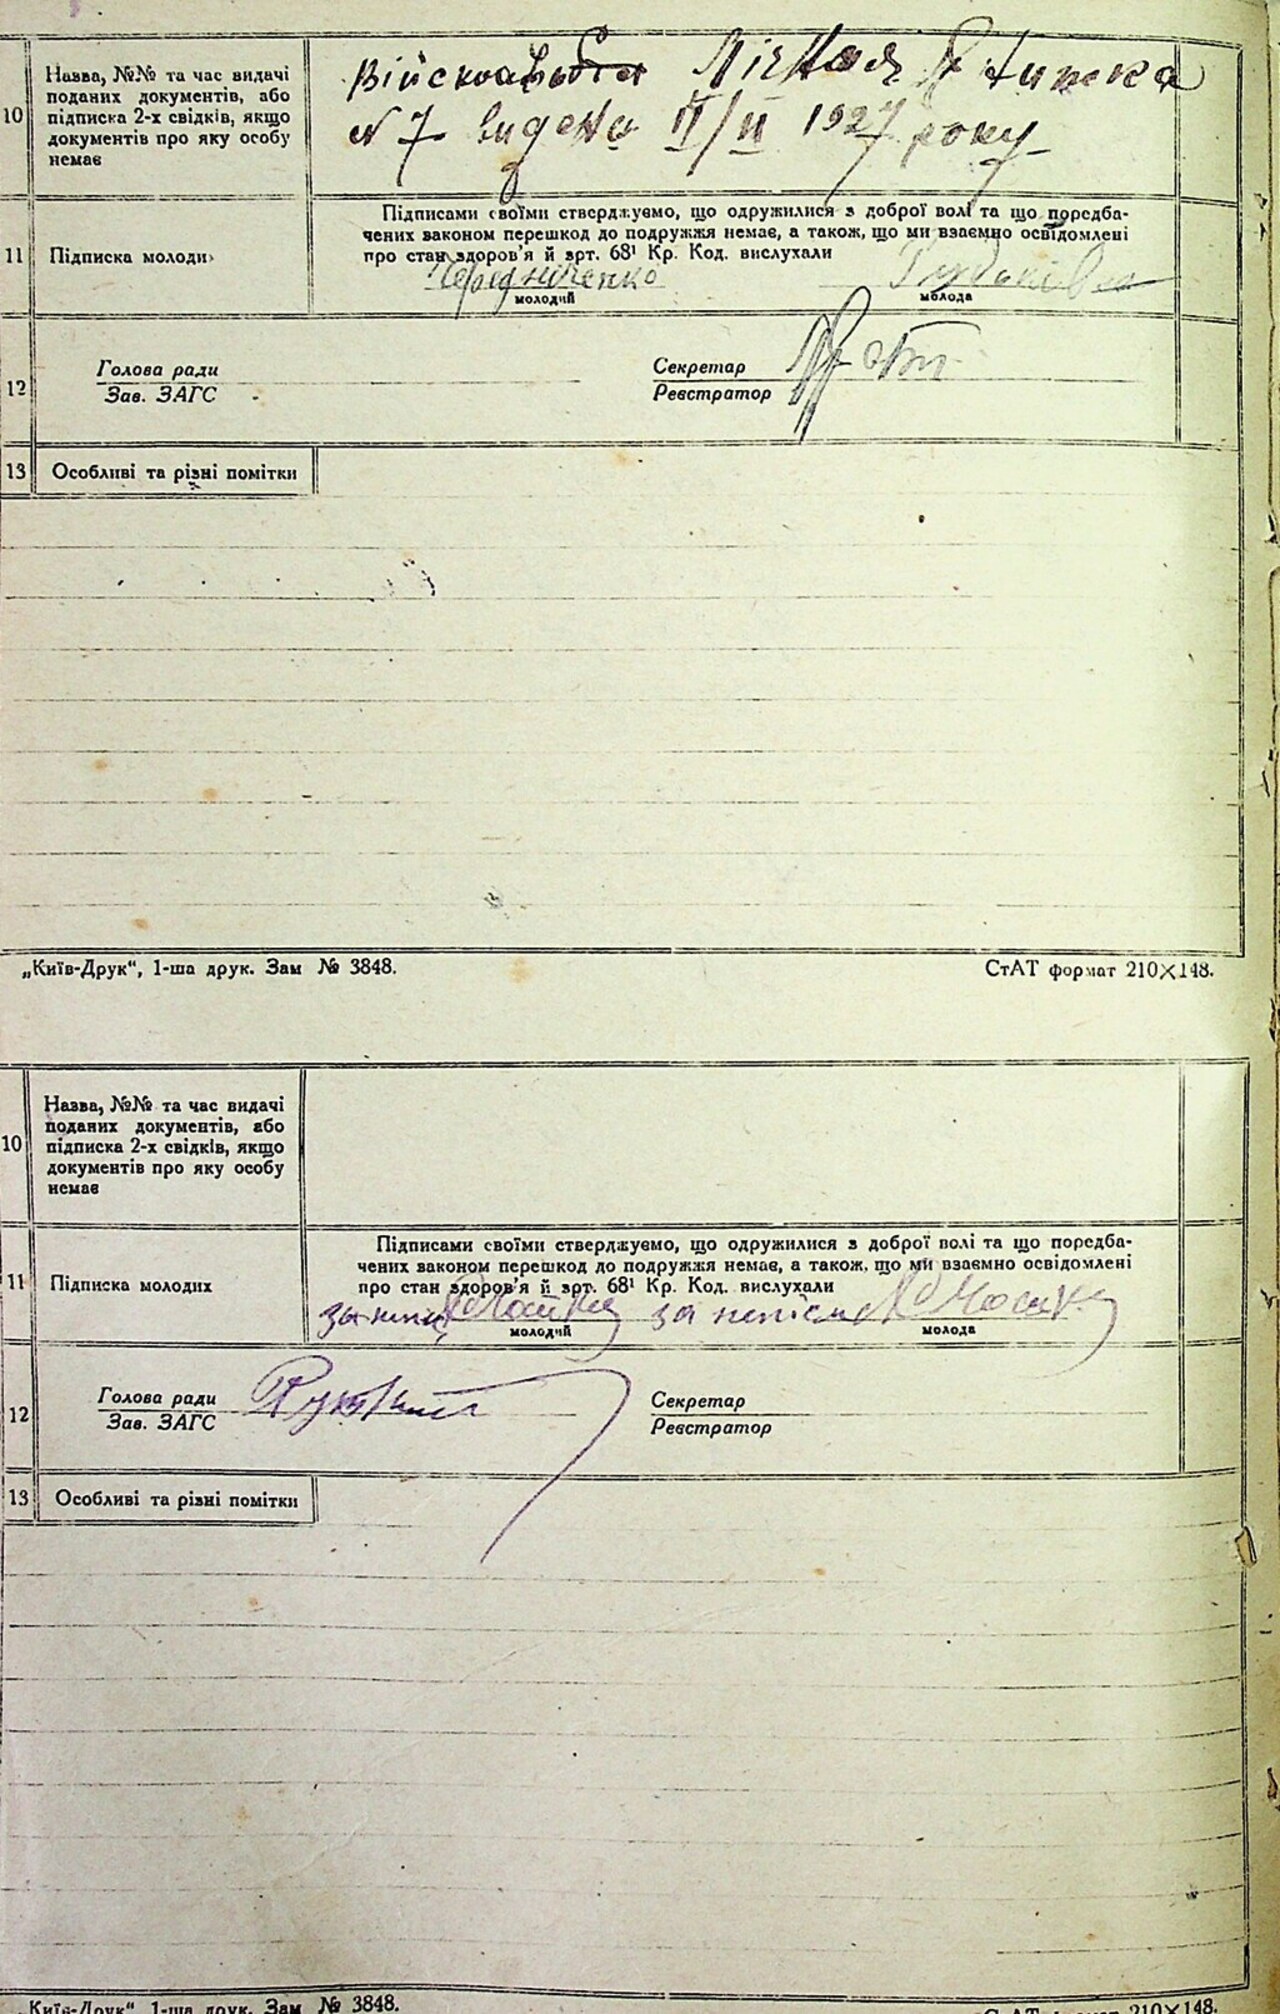 10
Назва, №№ та час видачі
поданих документів, або
підписка 2-х свідків, якщо
документів про яку особу
немає
N 7 видена 1927 року
11
Підписка молоди
Підписами своїми стверджуємо, що одружилися з доброї волі та що передба-
чених законом перешкод до подружжя немає, а також, що ми взаємно освідомлені
про стан здоров'я й арт. 68¹ Кр. Код. вислухали
Чередниченко
молодий
молода
12
Голова ради
Зав. ЗАГС
Секретар
Реєстратор
13
Особливі та різні помітки
„Київ-Друк“, 1-ша друк. Зам № 3848.
СтАТ формат 210×148.
10
Назва, №№ та час видачі
поданих документів, або
підписка 2-х свідків, якщо
документів про яку особу
немає
11
Підписка молодих
Підписами своїми стверджуємо, що одружилися з доброї волі та що передба-
чених законом перешкод до подружжя немає, а також, що ми взаємно освідомлені
про стан здоров'я й арт. 68¹ Кр. Код. вислухали
за
за
молодий
молода
12
Голова ради
Зав. ЗАГС
Секретар
Реєстратор
13
Особливі та різні помітки
„Київ-Друк“, 1-ша друк. Зам № 3848.
СтАТ формат 210×148.